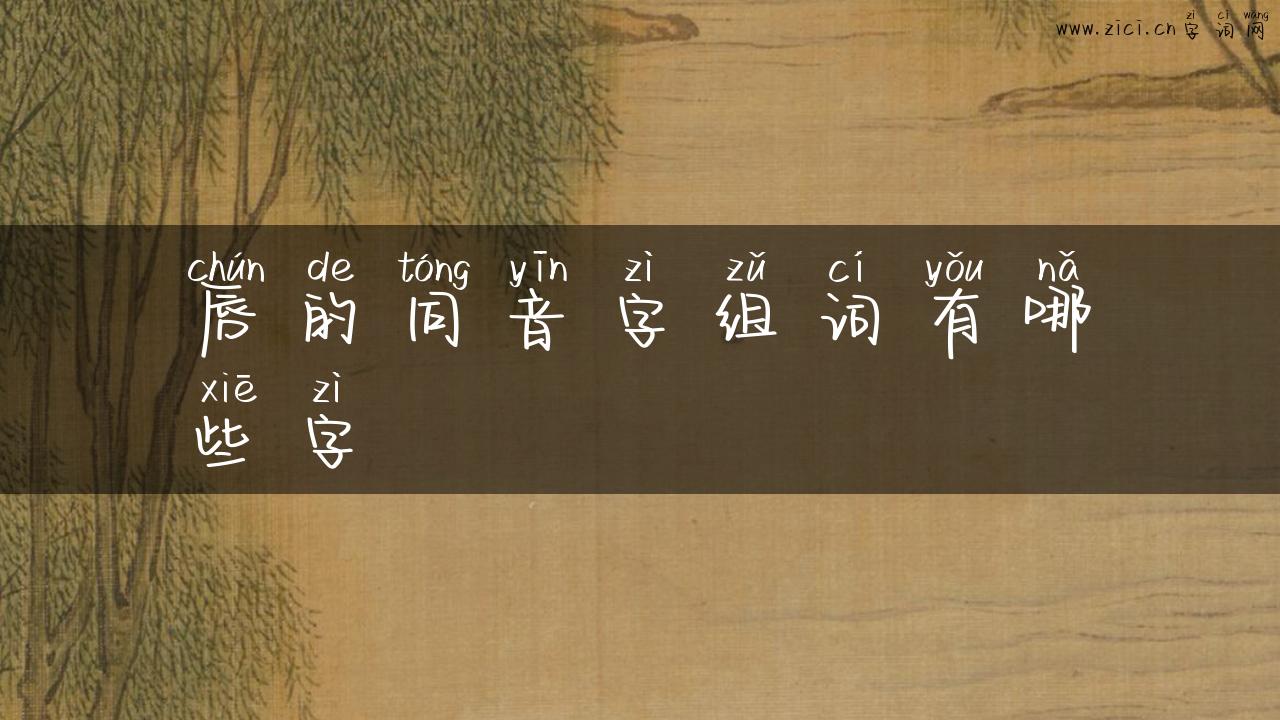 zì cí wǎng
www.zici.cn字词网
chún de tóng yīn zì zǔ cí yǒu nǎ
唇的同音字组词有哪
xiē zì
些字